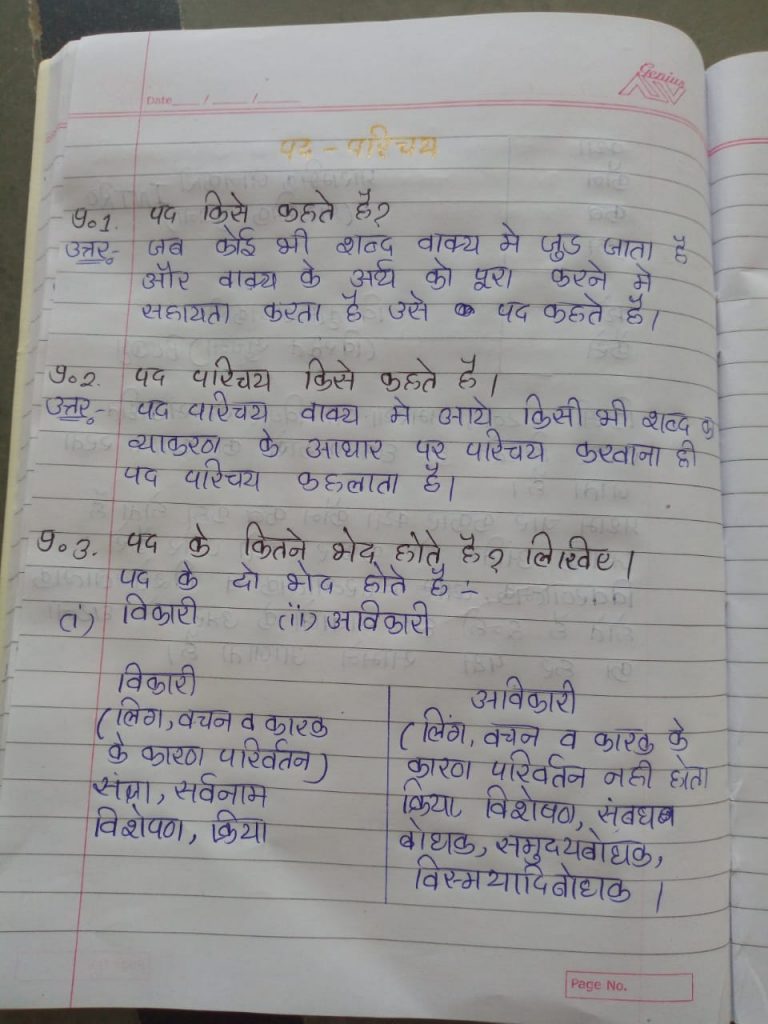 Genius
Date___/___/___
पद - परिचय
प्र०1. पद किसे कहते है?
उत्तर:- जब कोई भी शब्द वाक्य मे जुड जाता है
और वाक्य के अर्थ को पूरा करने मे
सहायता करता है उसे पद कहते है।
प्र०2. पद परिचय किसे कहते है।
उत्तर:- पद परिचय वाक्य मे आये किसी भी शब्द का
व्याकरण के आधार पर परिचय करवाना ही
पद परिचय कहलाता है।
प्र०3. पद के कितने भेद होते है? लिखिए।
पद के दो भेद होते है:-
(i) विकारी (ii) अविकारी
विकारी
(लिंग, वचन व कारक
के कारण परिवर्तन)
संज्ञा, सर्वनाम
विशेषण, क्रिया
अविकारी
(लिंग, वचन व कारक के
कारण परिवर्तन नही होता
क्रिया विशेषण, संबध
बोधक, समुदयबोधक,
विस्मयादिबोधक ।
Page No.